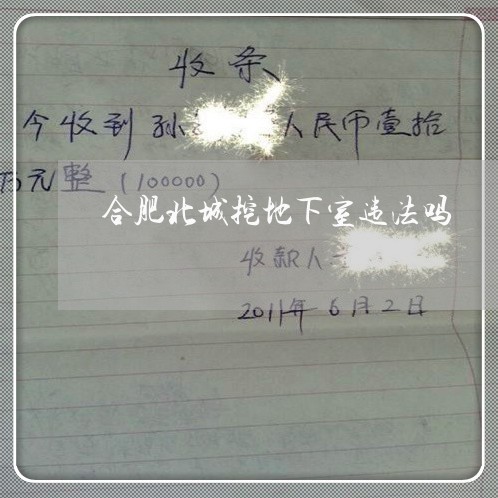 收条
今收到孙 人民币壹拾
万元整(100000)
合肥北城挖地下室违法吗
收款人
2011年6月2日